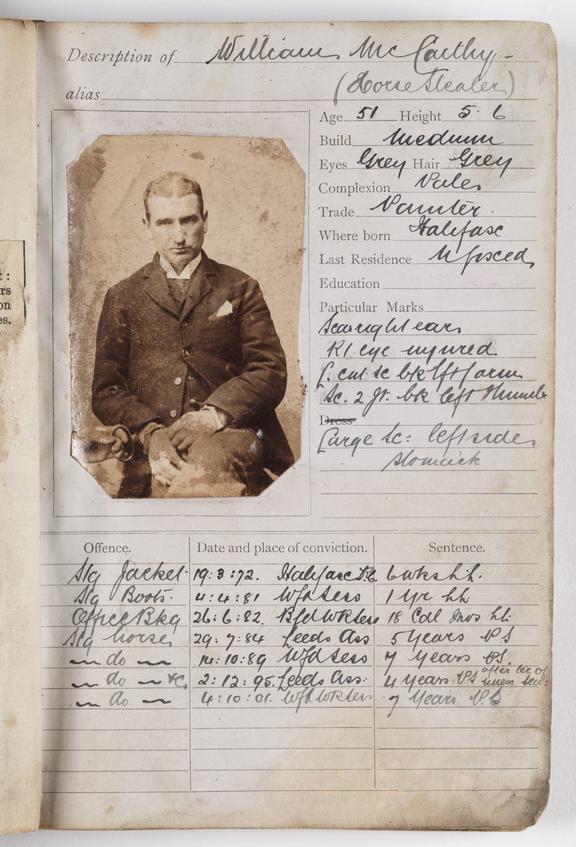 Description of William McCarthy -
alias (Horse Stealer)
Age 51 Height 5. 6
Build Medium
Eyes Grey Hair Grey
Complexion Pale
Trade Painter.
Where born Halifax
Last Residence N fixed
Education
Particular Marks
Sc: right ear
Rt. eye injured
L. cut sc bk lft f arm
Sc. 2 jt. bk left thumb
Dress
Large sc: left side
stomach
t:
rs
on
es.
Offence. Date and place of conviction. Sentence.
Stg Jacket 19:3:72. Halifax 6 wks h.l.
Stg Boots 4:4:81 Wfd Sess 1 yr hl
Office Bkg 26:6:82. Bfd WR Sess 18 Cal Mos hl.
Stg horse 29:7:84 Leeds Ass 5 years PS
— do — 14:10:89 Wfd Sess 7 years PS.
— do — &c. 2:12:95 Leeds Ass: 4 years PS after
— do — 4:10:01. Wfd WR Sess 7 years P.S